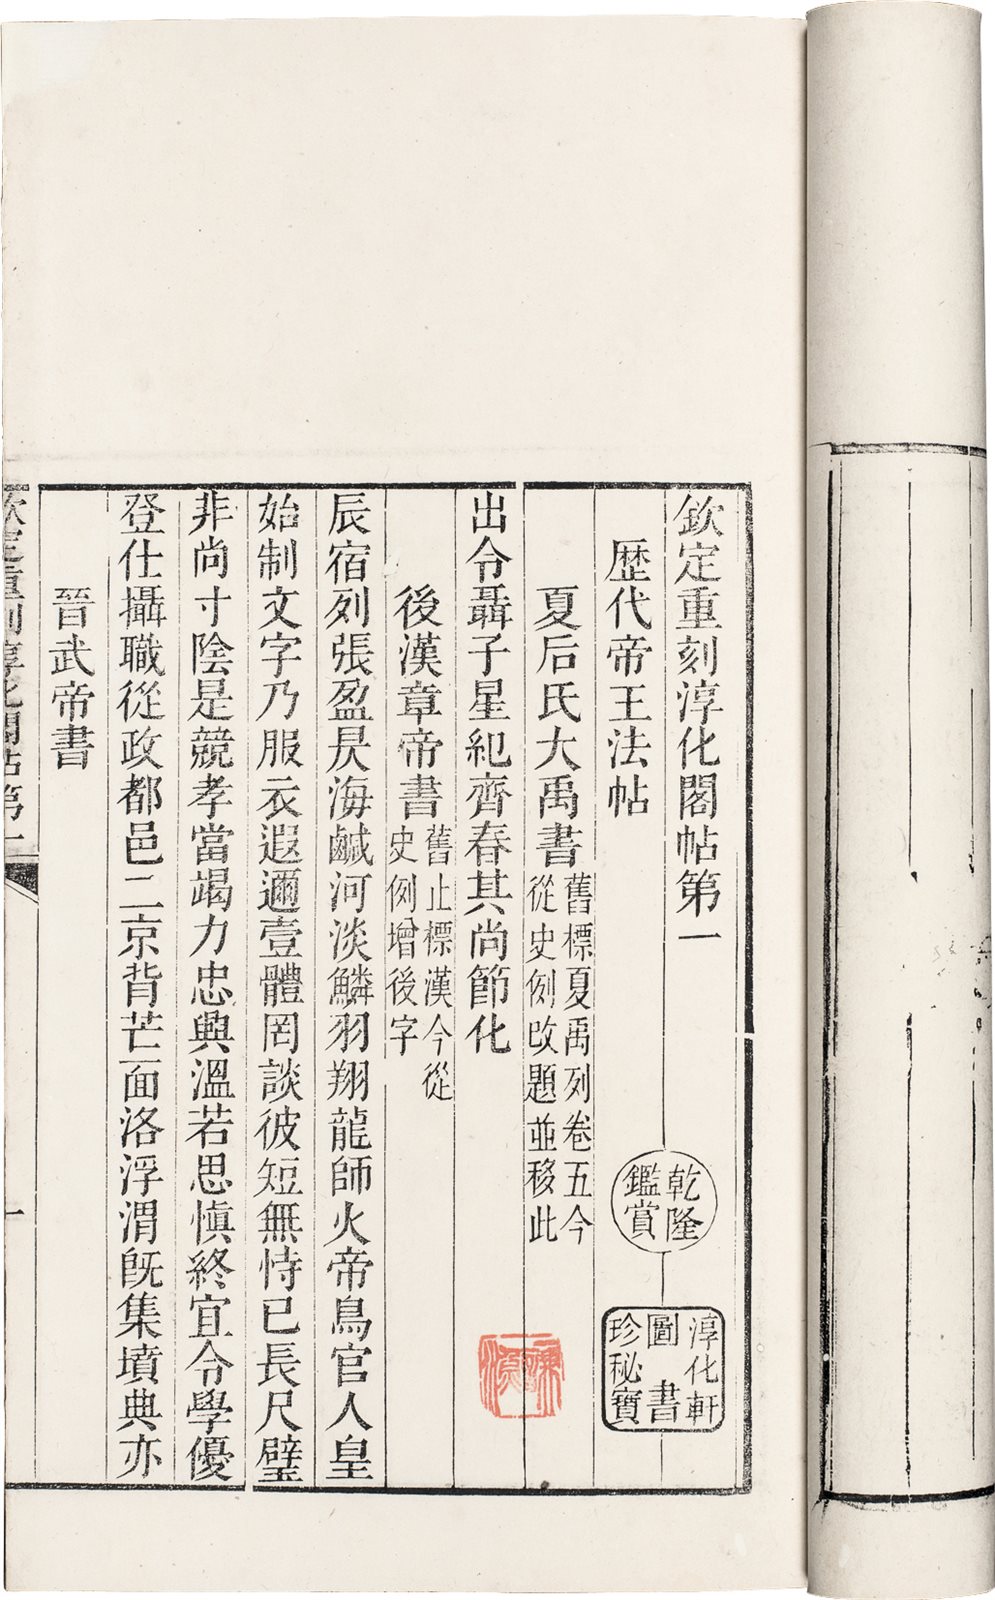 欽定重刻淳化閣帖第一
歷代帝王法帖
乾隆
鑑賞
淳化軒
圖書
珍秘寶
夏后氏大禹書
舊標夏禹列卷五今
從史例改題並移此
出令聶子星紀齊春其尚節化
後漢章帝書
舊止標漢今從
史例增後字
辰宿列張盈昃海鹹河淡鱗羽翔龍師火帝鳥官人皇
始制文字乃服衣遐邇壹體罔談彼短無恃已長尺璧
非尚寸陰是競孝當竭力忠與溫若思愼終宜令學優
登仕攝職從政都邑二京背芒面洛浮渭旣集墳典亦
晉武帝書
欽定重刻淳化閣帖第一
一